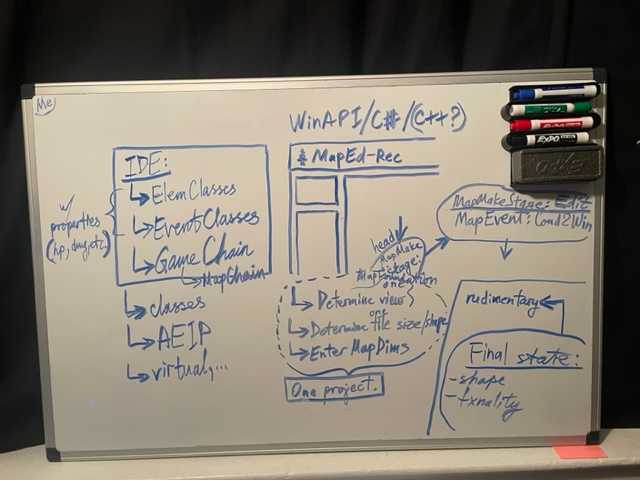 Me
WinAPI/C#/(C++?)
EXPO
IDE:
↳ElemClasses
↳EventClasses
↳GameChain
↳MapChain
w/
properties
(hp, dmg, etc.)
↳classes
↳AEIP
↳virtual,...
MapEd-Rec
head
MapMake
Stage:
↳Determine view
or
↳Determine tile size/shape
↳Enter MapDims
One project.
MapMakeStage: Edit
MapEvent: Cond2Win
rudimentary
Final state:
-shape
-fxnality